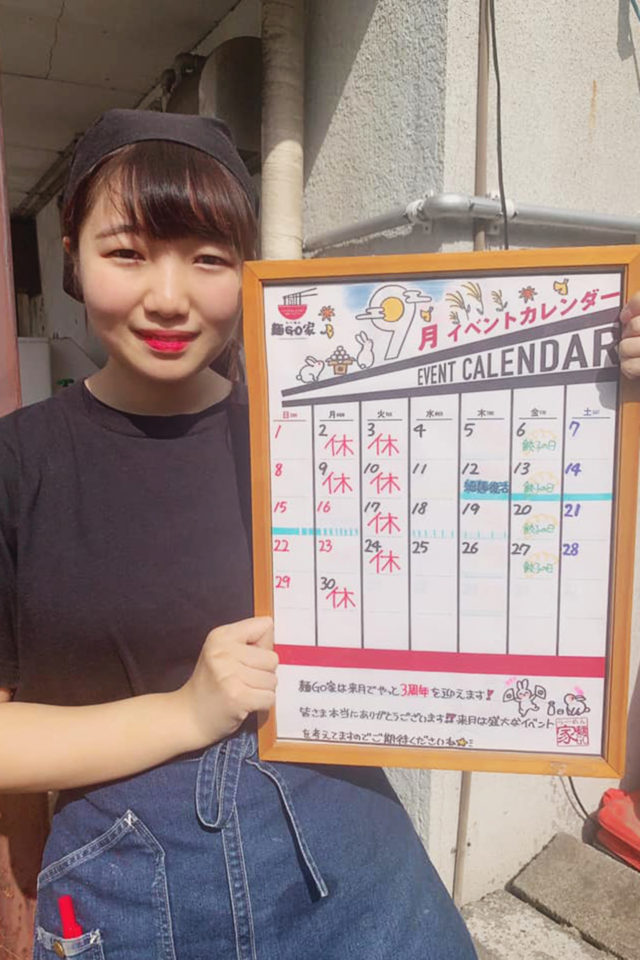 麺GO家
9月 イベントカレンダー
EVENT CALENDAR
日 月 火 水 木 金 土
1 2休 3休 4 5 6餃子の日 7
8 9休 10休 11 12細麺復活 13餃子の日 14
15 16 17休 18 19 20餃子の日 21
22 23 24休 25 26 27餃子の日 28
29 30休
麺GO家は来月でやっと3周年を迎えます!!
皆さま本当にありがとうございます!!来月は盛大なイベント
を考えてますのでご期待くださいね